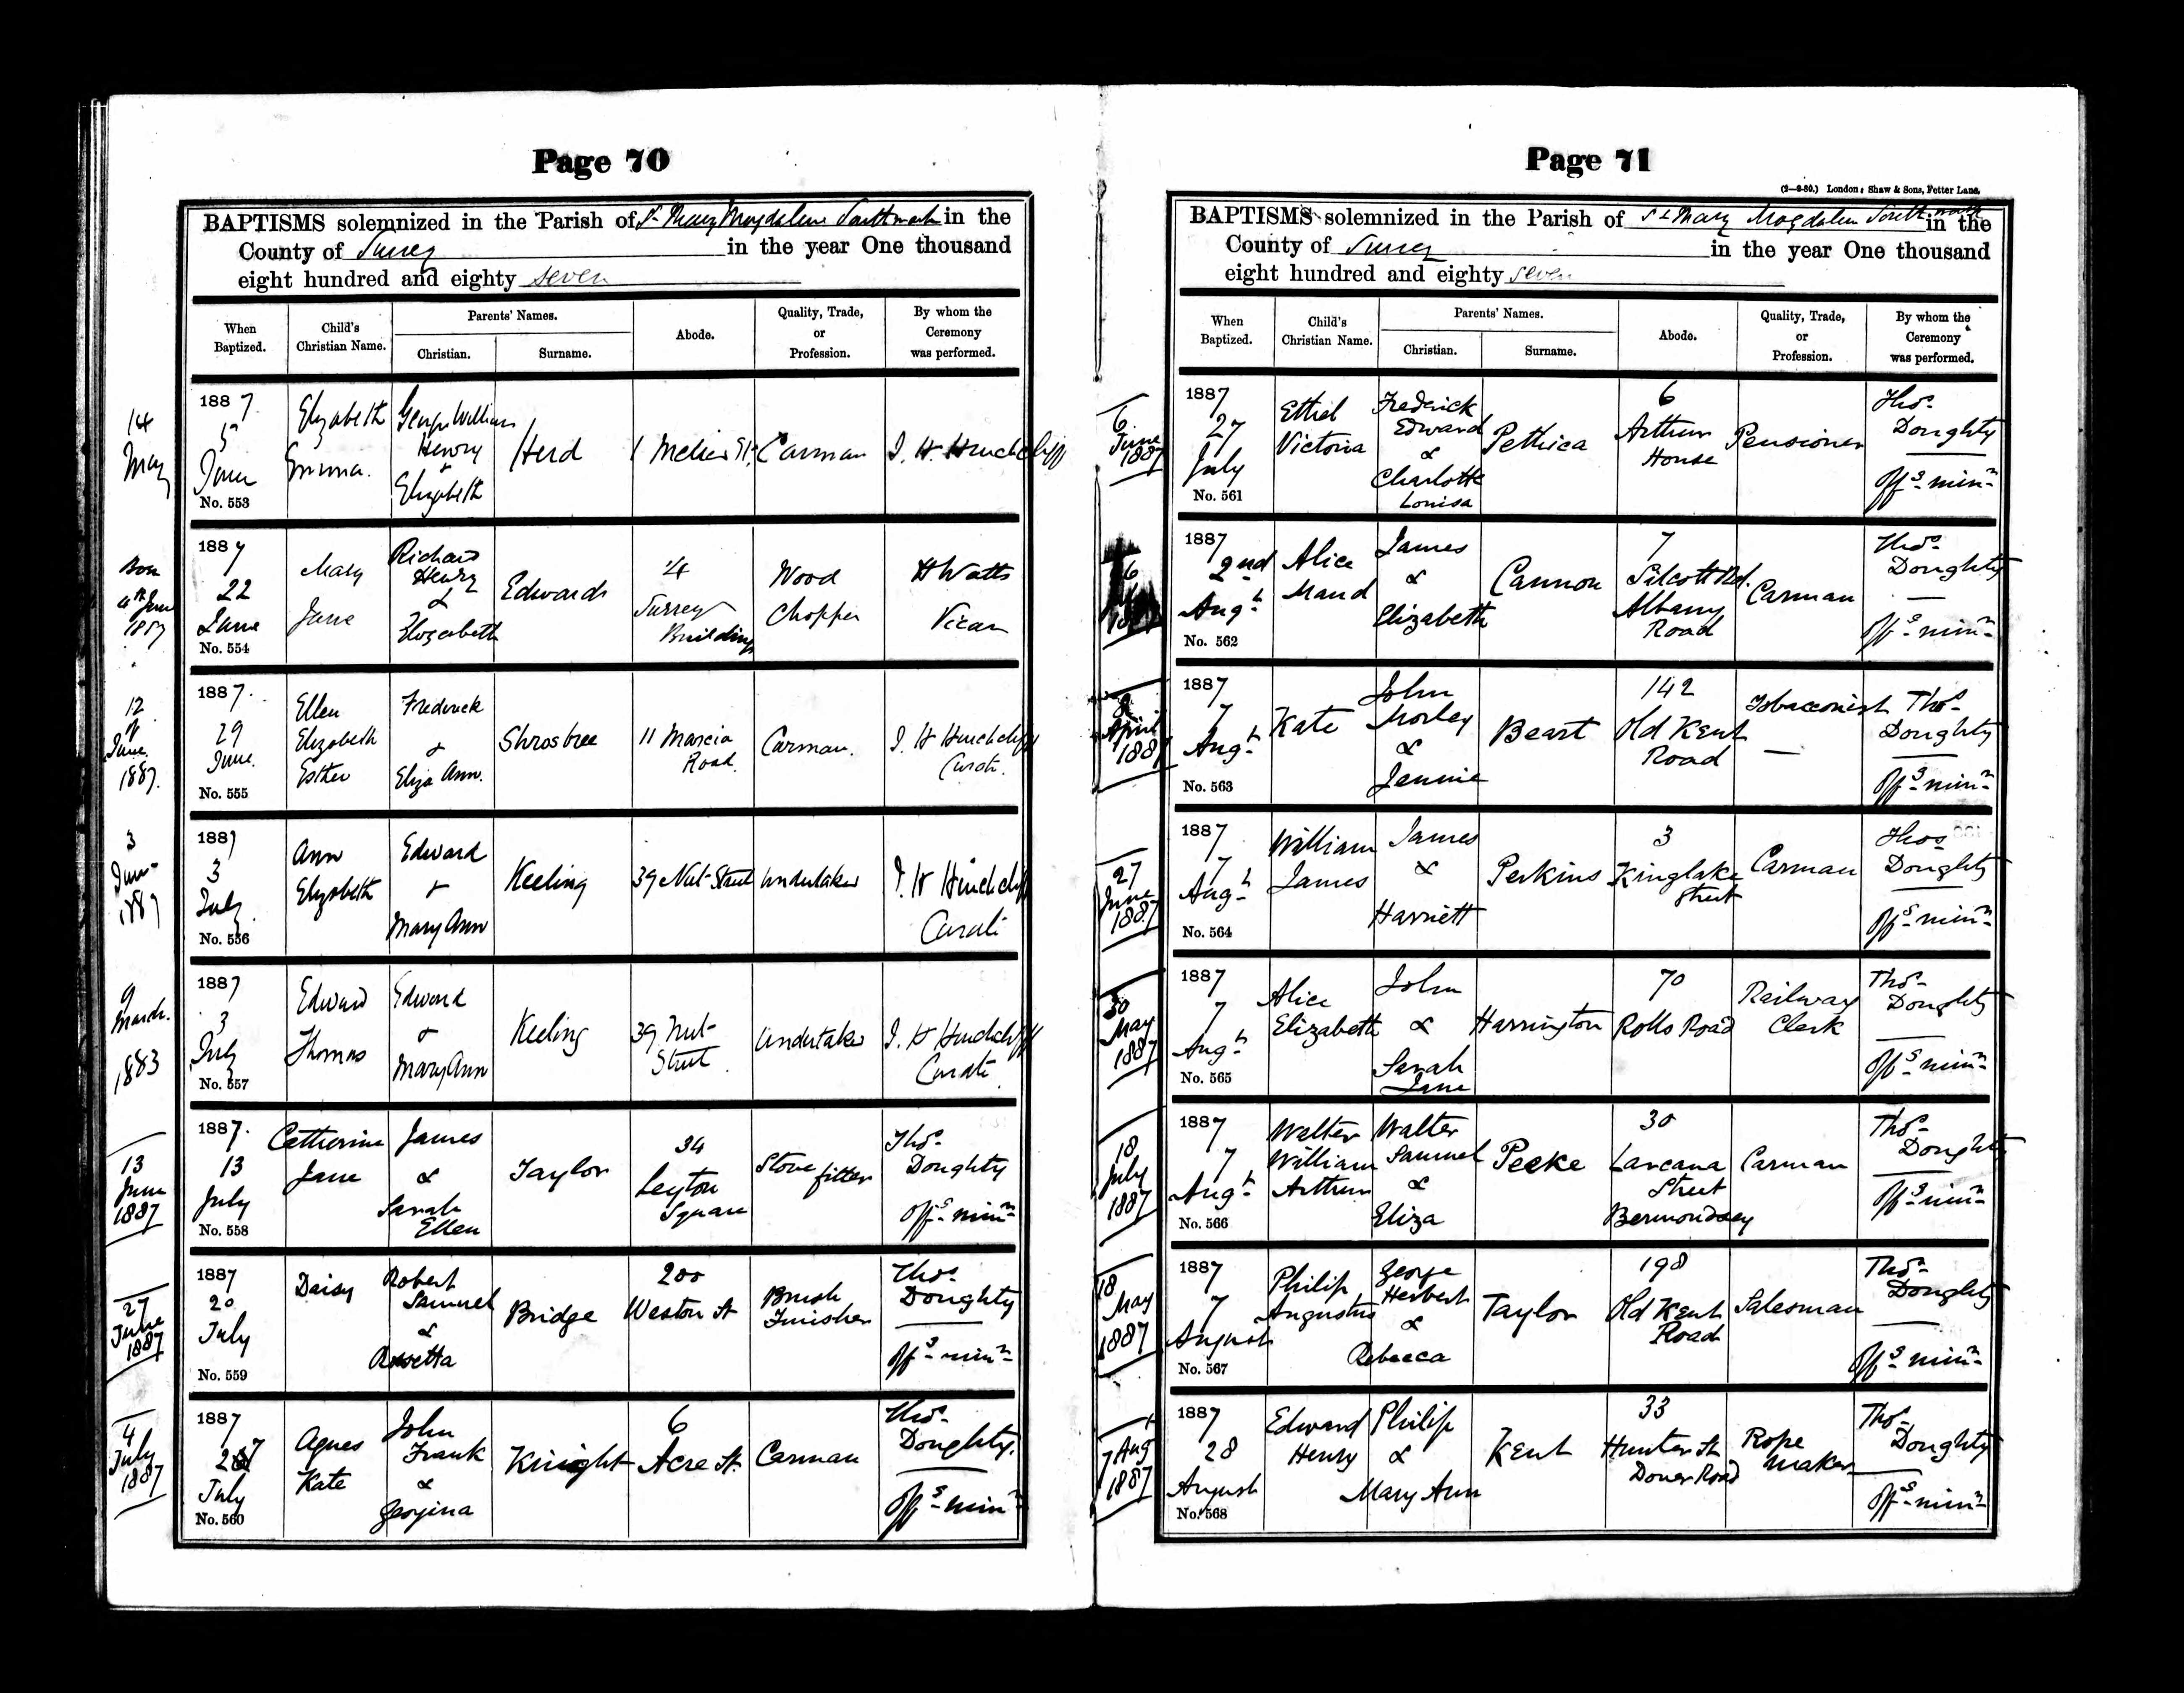 Page 70
BAPTISMS solemnized in the Parish of St Mary Magdalene Southwark in the
County of Surrey in the year One thousand
eight hundred and eighty seven
When Baptized.
Child's Christian Name.
Parents' Names.
Christian.
Surname.
Abode.
Quality, Trade, or Profession.
By whom the Ceremony was performed.
14
May
1887.
5
June
No. 553
Elizabeth
Emma.
George William
Henry
&
Elizabeth
Herd
Carman
J. H. Hinchcliff
Born
4th June
1887
1887
22
June
No. 554
Mary
Jane
Richard
Henry
&
Elizabeth
Edwards
4
Surrey
Buildings
Wood
Chopper
H Watts
Vicar
12
of
June
1887.
1887.
29
June.
No. 555
Ellen
Elizabeth
Esther
Frederick
&
Eliza Ann.
Shrosbree
11 Marcia
Road.
Carman.
J. H Hinchcliff
Curate.
3
June
1887
1887
3
July.
No. 556
Ann
Elizabeth
Edward
&
Mary Ann
Keeling
39 Nut Street
Undertaker
J. H Hinchcliff
Curate
9
March.
1883
1887
3
July
No. 557
Edward
Thomas
Edward
&
Mary Ann
Keeling
39 Nut-
Street.
Undertaker
J. H Hinchcliff
Curate
13
June
1887
1887.
13
July
No. 558
Catherine
Jane
James
&
Sarah
Ellen
Taylor
34
Leyton
Square
Stove fitter
Thos
Doughty
Offg minr
27
June
1887
1887
20
July
No. 559
Daisy
Robert
Samuel
&
Rosetta
Bridge
200
Weston St
Brush
Finisher
Thos
Doughty
Offg minr
4
July
1887
1887
27
July
No. 560
Agnes
Kate
John
Frank
&
Georgina
Knight
6
Acre St.
Carman
Thos
Doughty.
Offg minr
Page 71
(2—9-80.) London: Shaw & Sons, Fetter Lane.
BAPTISMS solemnized in the Parish of St Mary Magdalen Southwark in the
County of Surrey in the year One thousand
eight hundred and eighty seven
When Baptized.
Child's Christian Name.
Parents' Names.
Christian.
Surname.
Abode.
Quality, Trade, or Profession.
By whom the Ceremony was performed.
6
June
1887
1887
27
July
No. 561
Ethel
Victoria
Frederick
Edward
&
Charlotte
Louisa
Pethica
6
Arthur
House
Pensioner
Thos
Doughty
Offg minr
1887
2nd
Augt
No. 562
Alice
Maud
James
&
Elizabeth
Cannon
7
Silcott Rd.
Albany
Road
Carman
Thos
Doughty
Offg minr
8
April
1887
1887
7
Augt
No. 563
Kate
John
Morley
&
Jennie
Beart
142
Old Kent
Road
Tobacconist
Thos
Doughty
Offg minr
27
June
1887
1887
7
Augt
No. 564
William
James
James
&
Harriett
Perkins
3
Kinglake
Street
Carman
Thos
Doughty
Offg minr
30
May
1887
1887
7
Augt
No. 565
Alice
Elizabeth
John
&
Sarah
Jane
Harrington
70
Rolls Road
Railway
Clerk
Thos
Doughty
Offg minr
18
July
1887
1887
7
Augt
No. 566
Walter
William
Arthur
Walter
Samuel
&
Eliza
Peeke
30
Larcana
Street
Bermondsey
Carman
Thos
Doughty
Offg minr
18
May
1887
1887
7
August
No. 567
Philip
Augustus
George
Herbert
&
Rebecca
Taylor
198
Old Kent
Road
Salesman
Thos
Doughty
Offg minr
7 Aug
1887
1887
28
August
No. 568
Edward
Henry
Philip
&
Mary Ann
Kent
33
Hunter St
Dover Road
Rope
Maker
Thos
Doughty
Offg minr